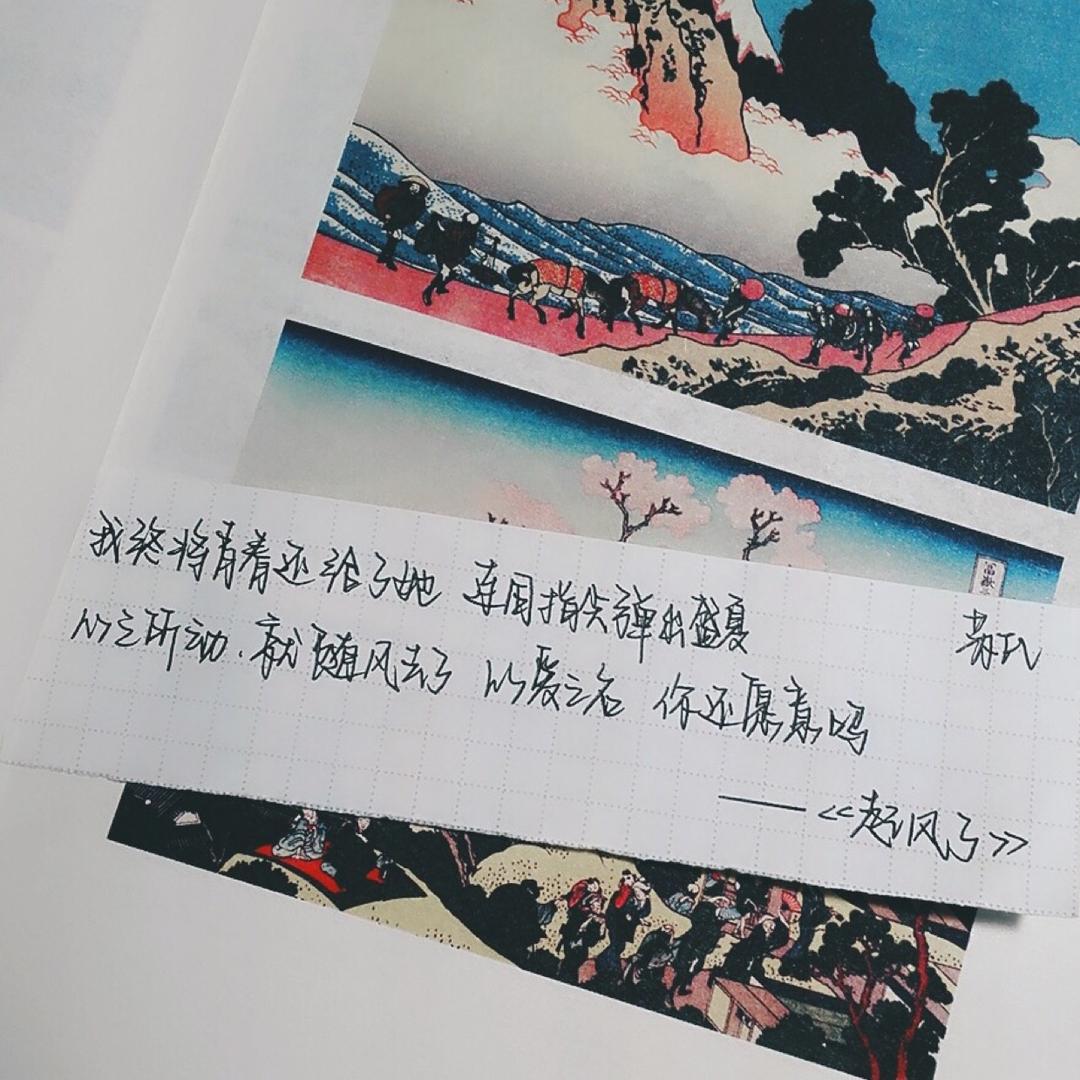 我终将青春还给了她 连同指尖弹出盛夏
苏氏
心之所动.就随风去了 以爱之名 你还愿意吗
——<<起风了>>
冨嶽